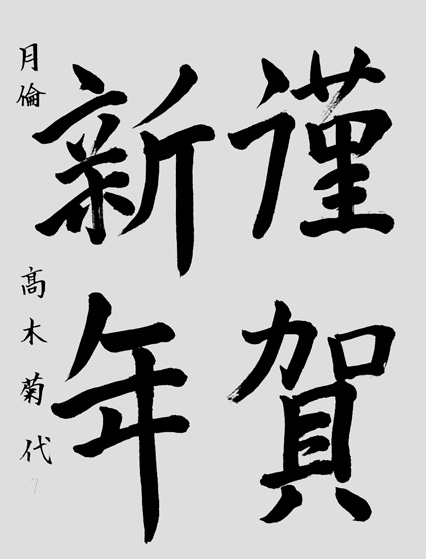 謹賀
新年
月倫 髙木菊代